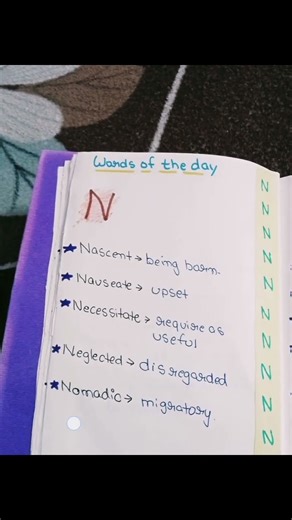 Words of the day
N
★ Nascent → being born.
★ Nauseate → upset
★ Necessitate → require as
useful
★ Neglected → disregarded
★ Nomadic → migratory.
N
N
N
N
N
N
N
N
N
N
N